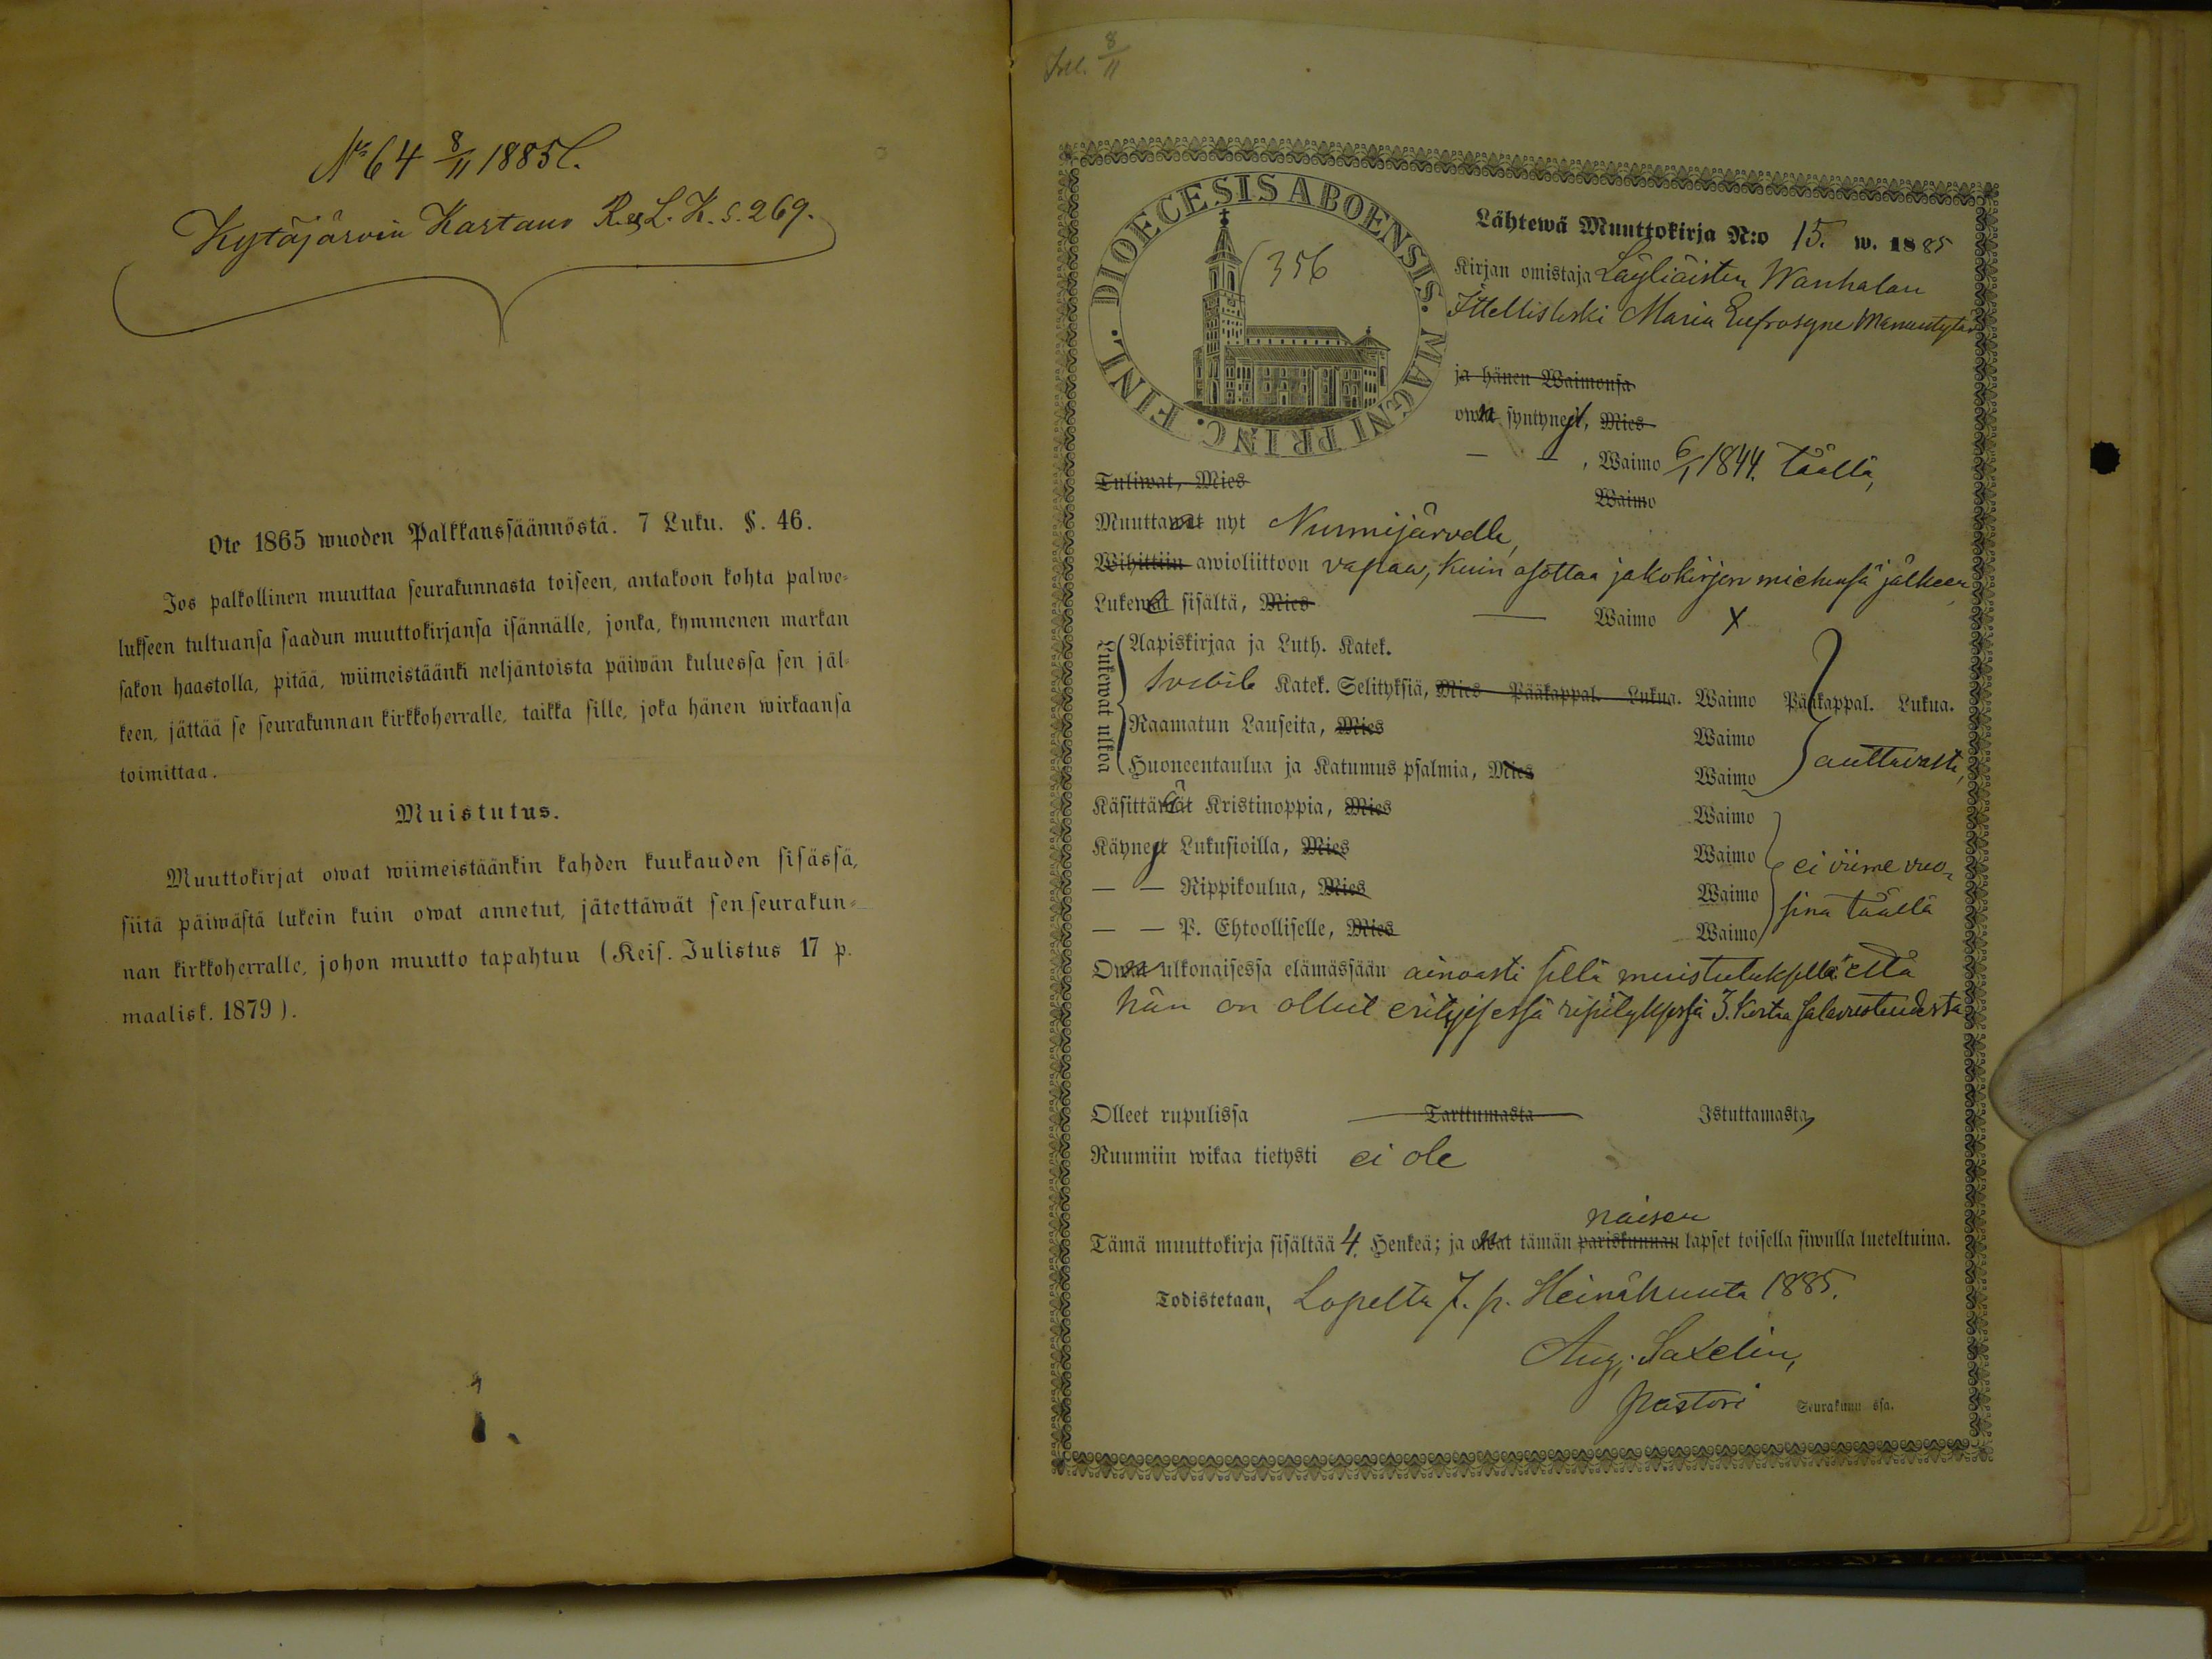 No 64 8/11 1885 l.
Kytäjärvin Kartano R. & L. K. s. 269.
Ote 1865 wuoden Palkkanssäännöstä. 7 Luku. §. 46.
Jos palkollinen muuttaa seurakunnasta toiseen, antakoon kohta palwe=
lukseen tultuansa saadun muuttokirjansa isännälle, jonka, kymmenen markan
sakon haastolla, pitää, wiimeistäänki neljäntoista päiwän kuluessa sen jäl=
keen, jättää se seurakunnan kirkkoherralle, taikka sille, joka hänen wirkaansa
toimittaa.
Muistutus.
Muuttokirjat owat wiimeistäänkin kahden kuukauden sisässä,
siitä päiwästä lukein kuin owat annetut, jätettäwät sen seurakun=
nan kirkkoherralle, johon muutto tapahtuu (Keis. Julistus 17 p.
maalisk. 1879).
8/11
DIOECESIS ABOENSIS. MAGNI PRINC. FINL.
356
Lähtewä Muuttokirja N:o 15. w. 1885
Kirjan omistaja Läyliäisten Wanhalan
Itsellisleski Maria Eufrosyne Manuntytär
ja hänen Waimonsa
owat syntynyt, Mies
— — , Waimo 6/1 1844. täällä,
Tuliwat, Mies Waimo
Muuttawat nyt Nurmijärvelle,
Wihittiin awioliittoon vapaa, kuin osottaa jakokirjan miehensä jälkeen
Lukewat sisältä, Mies — Waimo X
Lukewat ulkoa
Aapiskirjaa ja Luth. Katek.
Svebil. Katek. Selityksiä, Mies Pääkappal. Lukua. Waimo Pääkappal. Lukua.
Raamatun Lauseita, Mies Waimo
Huoneentaulua ja Katumus psalmia, Mies Waimo auttavasti,
Käsittäwät Kristinoppia, Mies Waimo
Käynyt Lukusioilla, Mies Waimo ei viime vuo=
— — Rippikoulua, Mies Waimo sina täällä
— — P. Ehtoolliselle, Mies Waimo
Owat ulkonaisessa elämässään ainoasti sillä muistutuksella että
hän on ollut erityisessä ripityksessä 3. kertaa salavuoteudesta
Olleet rupulissa Tarttumasta Istuttamasta,
Ruumiin wikaa tietysti ei ole
naisen
Tämä muuttokirja sisältää 4. Henkeä; ja owat tämän pariskunnan lapset toisella siwulla lueteltuina.
Todistetaan, Lopelta 7. p. Heinäkuuta 1885.
Aug. Saxelin,
pastori Seurakunnassa.